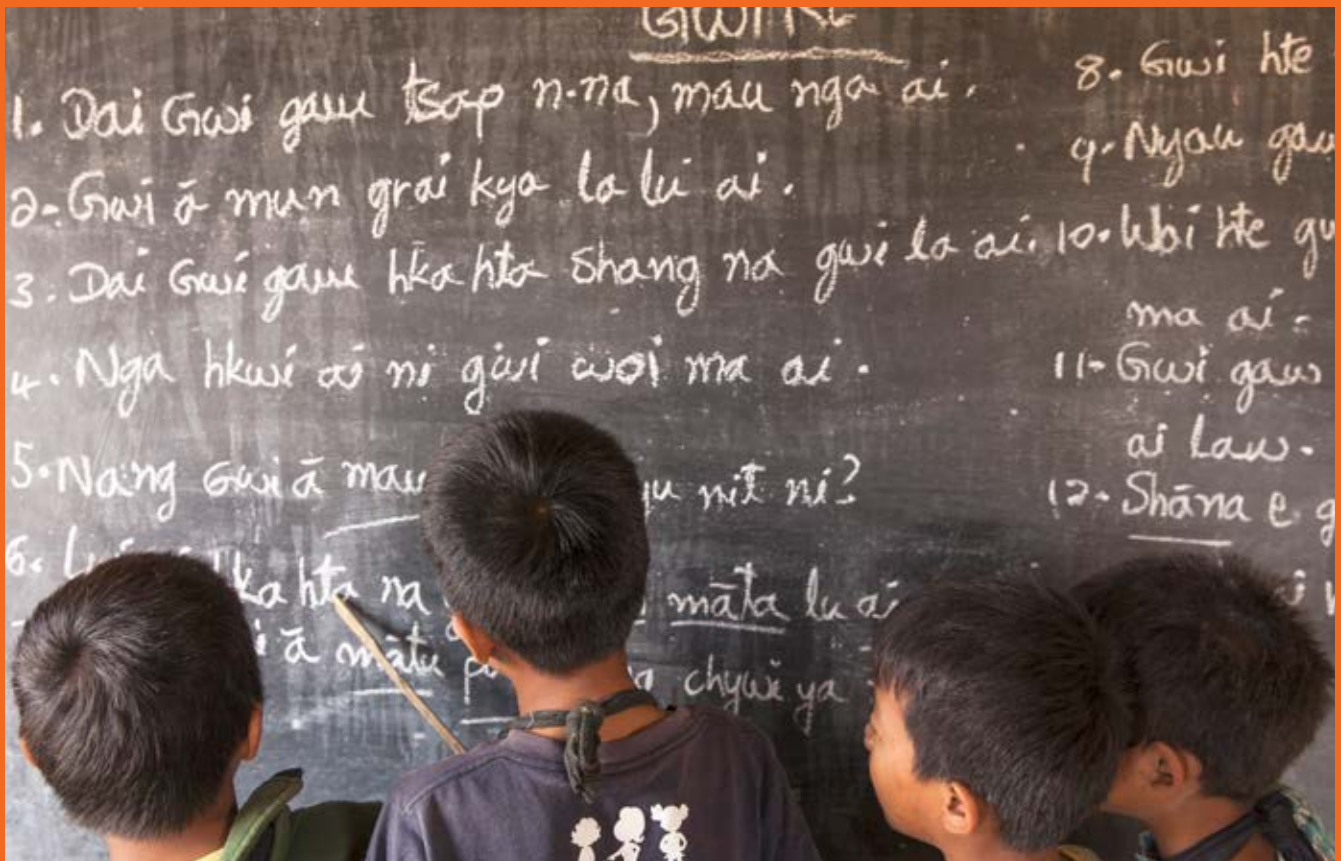 GWI
1. Dai Gwi gaw tsap n-na, mau nga ai.
2- Gwi ā mun grai kya la lu ai.
3. Dai Gwi gaw hka hta shang na gwi la ai.
4. Nga hkwi ai ni gwi woi ma ai.
5. Nang Gwi ā mau yu nit ni?
6. hka hta na māta lu ai
ā mātu chywi ya
8. Gwi hte
9- Nyau gaw
10. Woi hte
ma ai.
11- Gwi gaw
ai law.
12- Shāna e